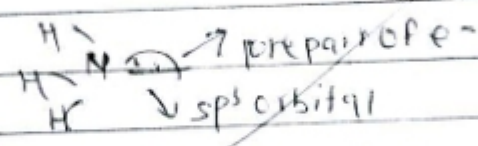 H
N : → pure pair of e-
H
H ↓ sp³ orbital